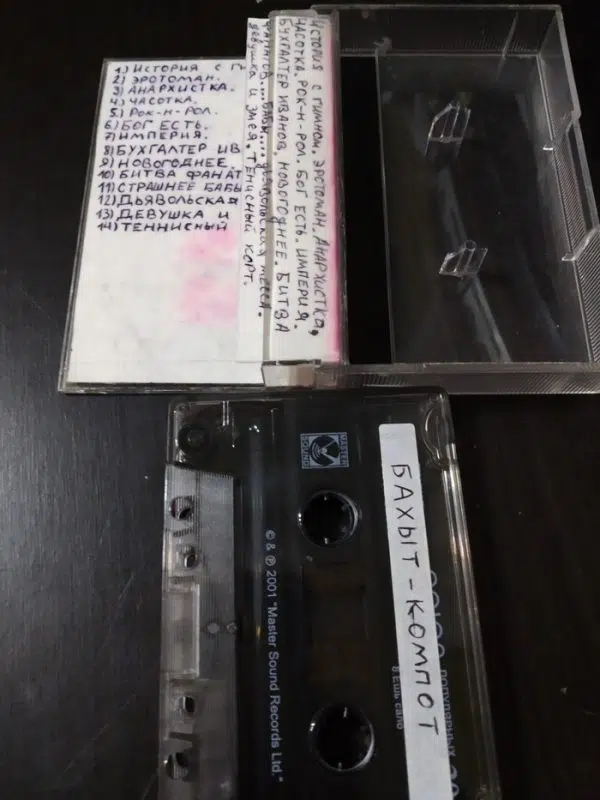 1) ИСТОРИЯ С Г
2) ЭРОТОМАН.
3) АНАРХИСТКА.
4) ЧАСОТКА.
5) РОК-Н-РОЛ.
6) БОГ ЕСТЬ.
7) ИМПЕРИЯ.
8) БУХГАЛТЕР ИВ
9) НОВОГОДНЕЕ.
10) БИТВА ФАНАТ
11) СТРАШНЕЕ БАБЫ
12) ДЬЯВОЛЬСКАЯ
13) ДЕВУШКА И
14) ТЕННИСНЫЙ
ИСТОРИЯ С ГИМНОМ. ЭРОТОМАН. АНАРХИСТКА,
ЧАСОТКА. РОК-Н-РОЛ. БОГ ЕСТЬ. ИМПЕРИЯ.
БУХГАЛТЕР ИВАНОВ. НОВОГОДНЕЕ. БИТВА
ФАНАТОВ... БАБЫ... ДЬЯВОЛЬСКАЯ МЕССА.
ДЕВУШКА И ЗМЕЯ. ТЕНИСНЫЙ КОРТ.
MASTER
SOUND
БАХЫТ-КОМПОТ
ПОПУЛЯРНЫХ
8 Ешь сало
© & ℗ 2001 "Master Sound Records Ltd."